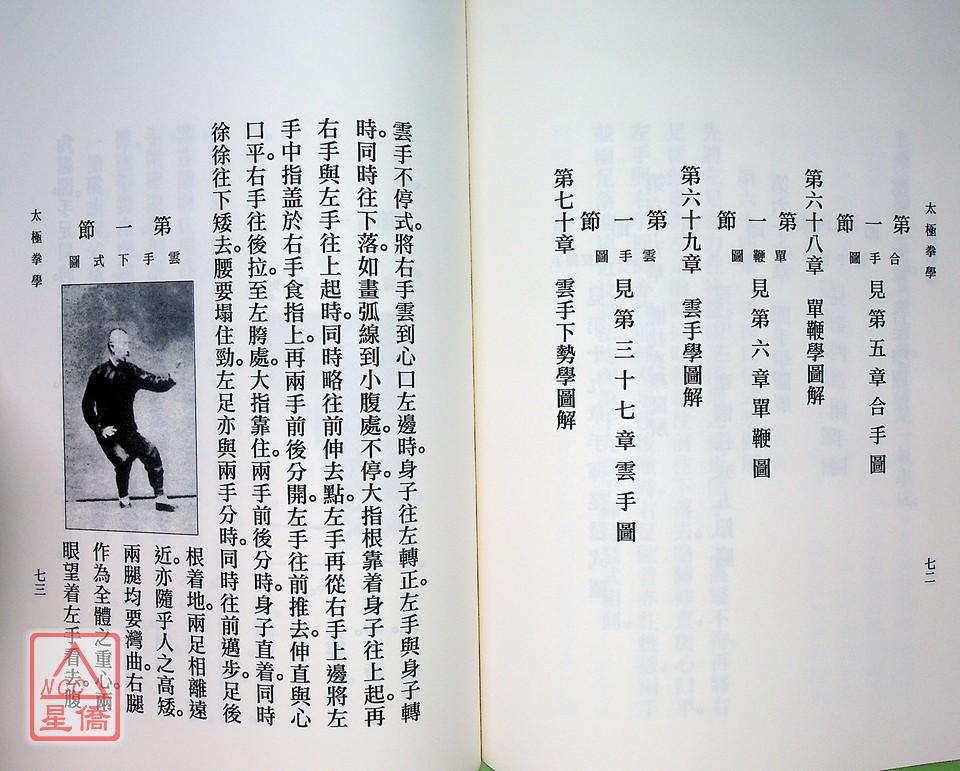 太極拳學
七二
第一節
合手圖
見第五章合手圖
第六十八章 單鞭學圖解
第一節
單鞭圖
見第六章單鞭圖
第六十九章 雲手學圖解
第一節
雲手圖
見第三十七章雲手圖
第七十章 雲手下勢學圖解
雲手不停式。將右手雲到心口左邊時。身子往左轉正。左手與身子轉
時。同時往下落。如畫弧線到小腹處。不停。大指根靠着身子往上起。再
右手與左手往上起時。同時略往前伸去點。左手再從右手上邊將左
手中指盖於右手食指上。再兩手前後分開。左手往前推去。伸直與心
口平。右手往後拉。至左胯處。大指靠住。兩手前後分時。身子直着。同時
徐徐往下矮去。腰要塌住勁。左足亦與兩手分時。同時往前邁步。足後
根着地。兩足相離遠
近。亦隨乎人之高矮。
兩腿均要灣曲。右腿
作為全體之重心。兩
眼望着左手看去。腹
第一節
雲手下式圖
太極拳學
七三
NCC
星僑